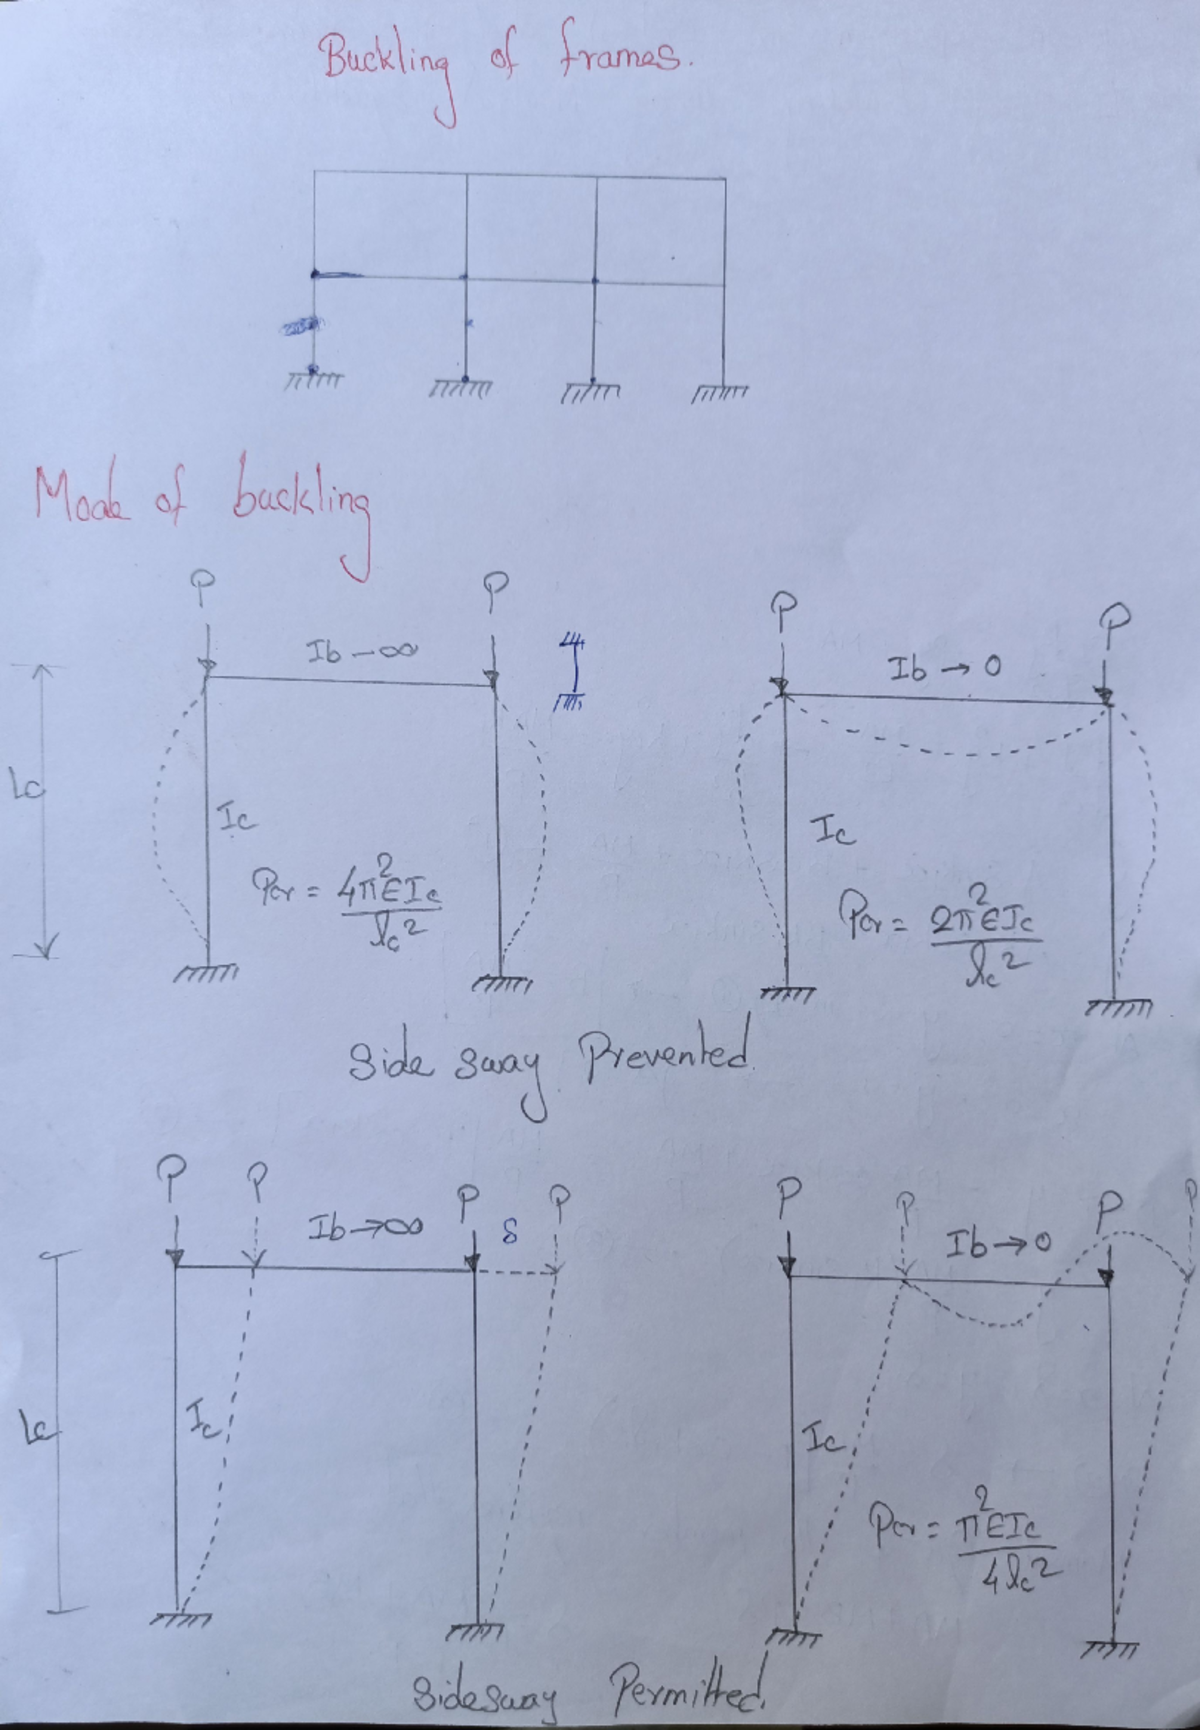 Buckling of frames.
Mode of buckling
P P P P
Ib → ∞ Ib → 0
lc Ic Ic
Pcr = 4π²EIc / lc² Pcr = 2π²EIc / lc²
Side sway Prevented
P P P P P P P P
Ib → ∞ δ Ib → 0
lc Ic Ic
Pcr = π²EIc / 4lc²
Sidesway Permitted.